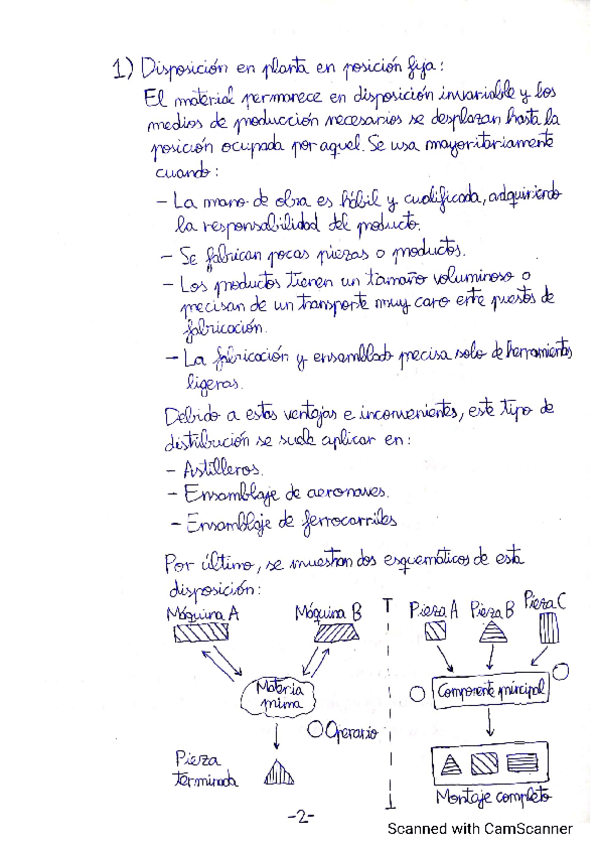 1) Disposición en planta en posición fija:
El material permanece en disposición invariable y los
medios de producción necesarios se desplazan hasta la
posición ocupada por aquel. Se usa mayoritariamente
cuando:
- La mano de obra es hábil y cualificada, adquiriendo
la responsabilidad del producto.
- Se fabrican pocas piezas o productos.
- Los productos tienen un tamaño voluminoso o
precisan de un transporte muy caro entre puestos de
fabricación.
- La fabricación y ensamblado precisa solo de herramientas
ligeras.
Debido a estas ventajas e inconvenientes, este tipo de
distribución se suele aplicar en:
- Astilleros.
- Ensamblaje de aeronaves.
- Ensamblaje de ferrocarriles
Por último, se muestran dos esquemáticos de esta
disposición:
Máquina A
Máquina B
Materia
prima
Operario
Pieza
terminada
Pieza A
Pieza B
Pieza C
Componente principal
Montaje completo
-2-
Scanned with CamScanner